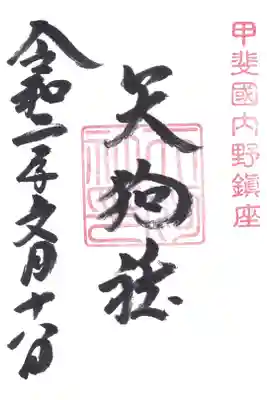 甲斐國内野鎮座
天狗
令和二年文月十八日